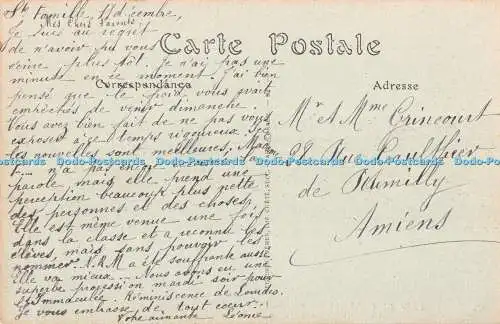 Ste Famille, 11 décembre,
Mes Chers Parents
Je suis au regret
de n'avoir pu vous
écrire plus tôt. Je n'ai pas une
minute en ce moment. J'ai bien
pensé que le froid vous avait
empêchés de venir dimanche.
Vous avez bien fait de ne pas vous
exposer à ce temps rigoureux. Les
nouvelles sont meilleures, Madame
n'a pas encore
parole, mais elle prend une
perception beaucoup plus nette
des personnes et des choses.
Elle est même venue une fois
dans la classe et a reconnu les
élèves, mais sans pouvoir les
nommer. N.R.M a été souffrante aussi
Elle va mieux. Nous avons eu une
superbe procession mardi soir pour
l'Immaculée. Réminiscence de Lourdes.
Je vous embrasse de tout coeur.
Votre aimante Léonie
Carte Postale
Correspondance
Adresse
Mr et Mme Crincourt
22 Rue
de Rumilly
Amiens
Dodo-Postcards Dodo-Postcards Dodo-Postcards Dodo-Postcards Dodo-Postcards Dodo-Postcards